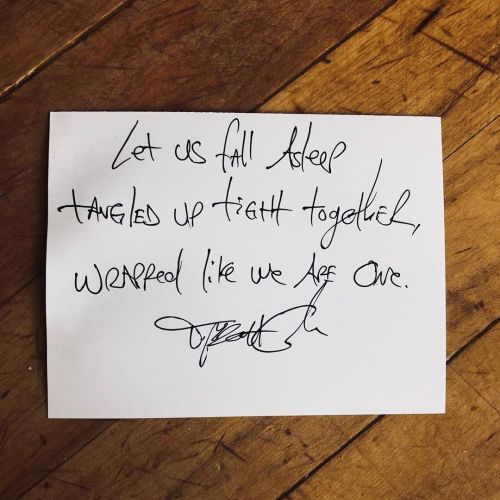 Let us fall Asleep
tangled up tight together,
wrapped like we Are one.